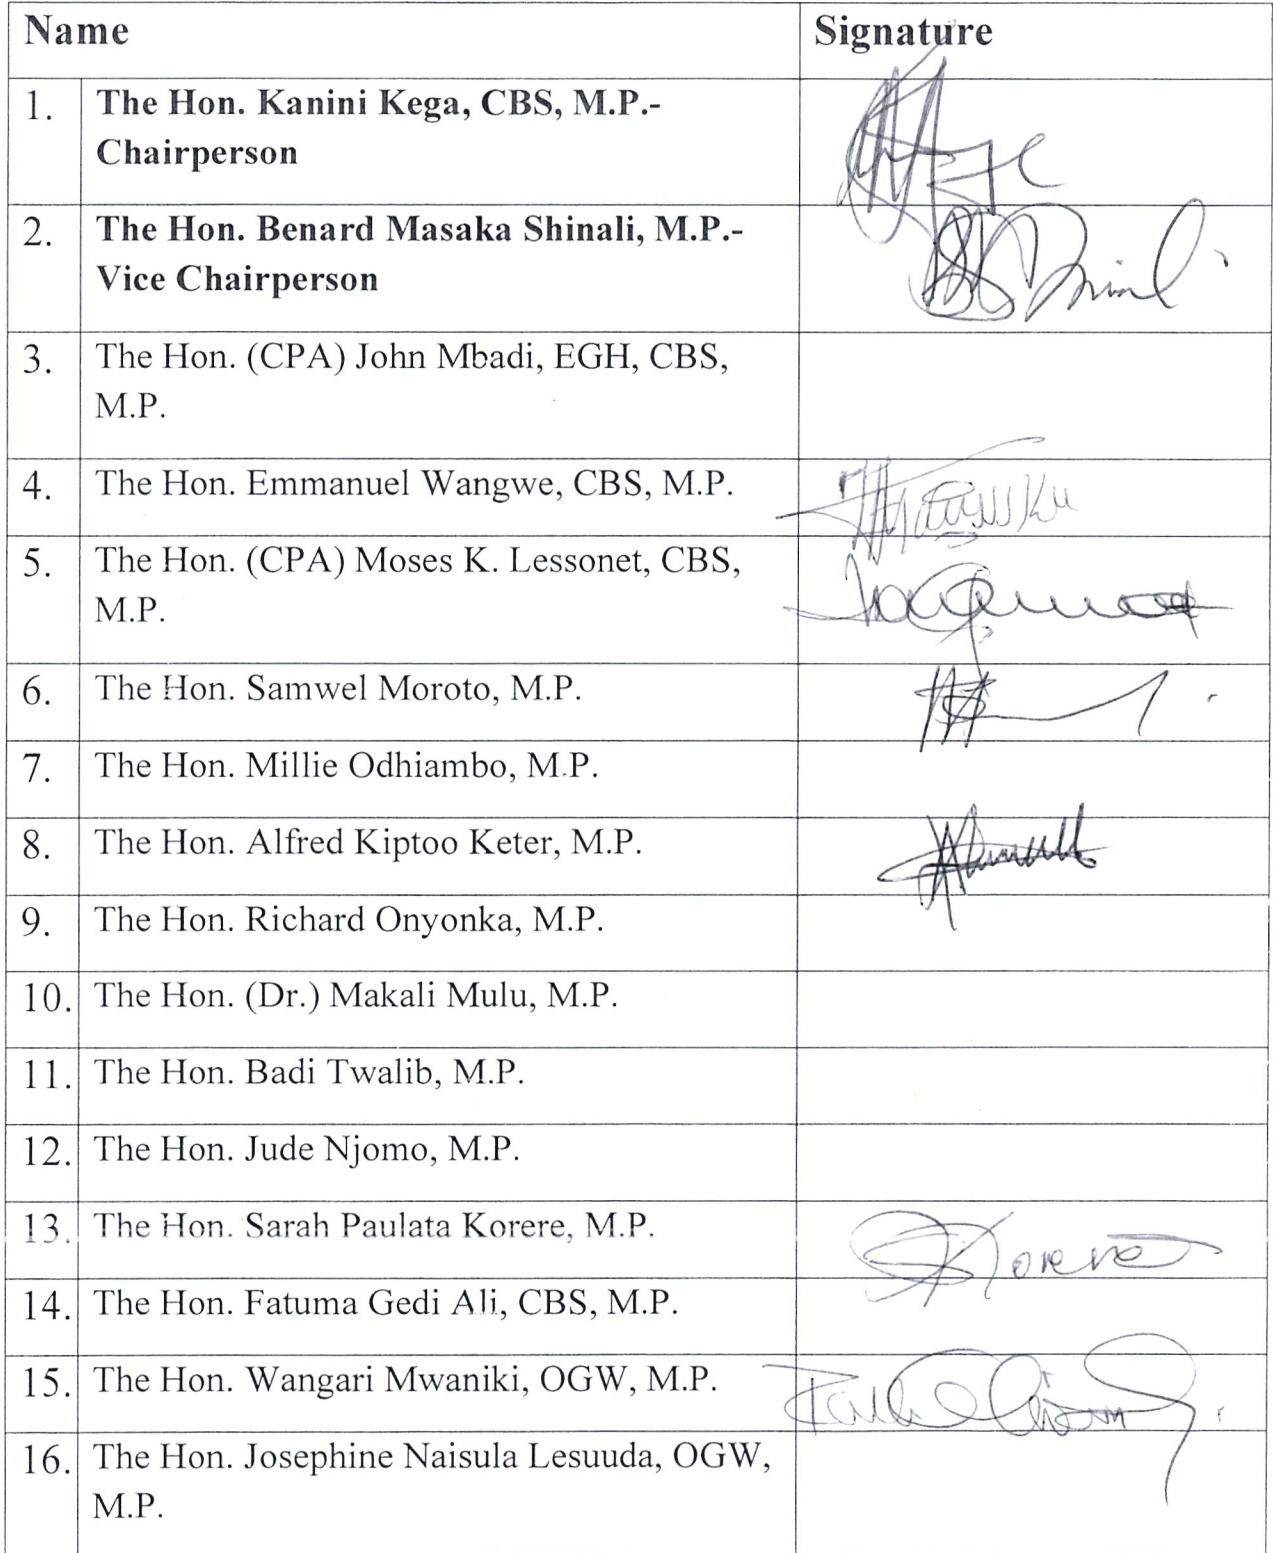 Name Signature
1. The Hon. Kanini Kega, CBS, M.P.-
Chairperson
2. The Hon. Benard Masaka Shinali, M.P.-
Vice Chairperson
3. The Hon. (CPA) John Mbadi, EGH, CBS,
M.P.
4. The Hon. Emmanuel Wangwe, CBS, M.P.
5. The Hon. (CPA) Moses K. Lessonet, CBS,
M.P.
6. The Hon. Samwel Moroto, M.P.
7. The Hon. Millie Odhiambo, M.P.
8. The Hon. Alfred Kiptoo Keter, M.P.
9. The Hon. Richard Onyonka, M.P.
10. The Hon. (Dr.) Makali Mulu, M.P.
11. The Hon. Badi Twalib, M.P.
12. The Hon. Jude Njomo, M.P.
13. The Hon. Sarah Paulata Korere, M.P.
14. The Hon. Fatuma Gedi Ali, CBS, M.P.
15. The Hon. Wangari Mwaniki, OGW, M.P.
16. The Hon. Josephine Naisula Lesuuda, OGW,
M.P.